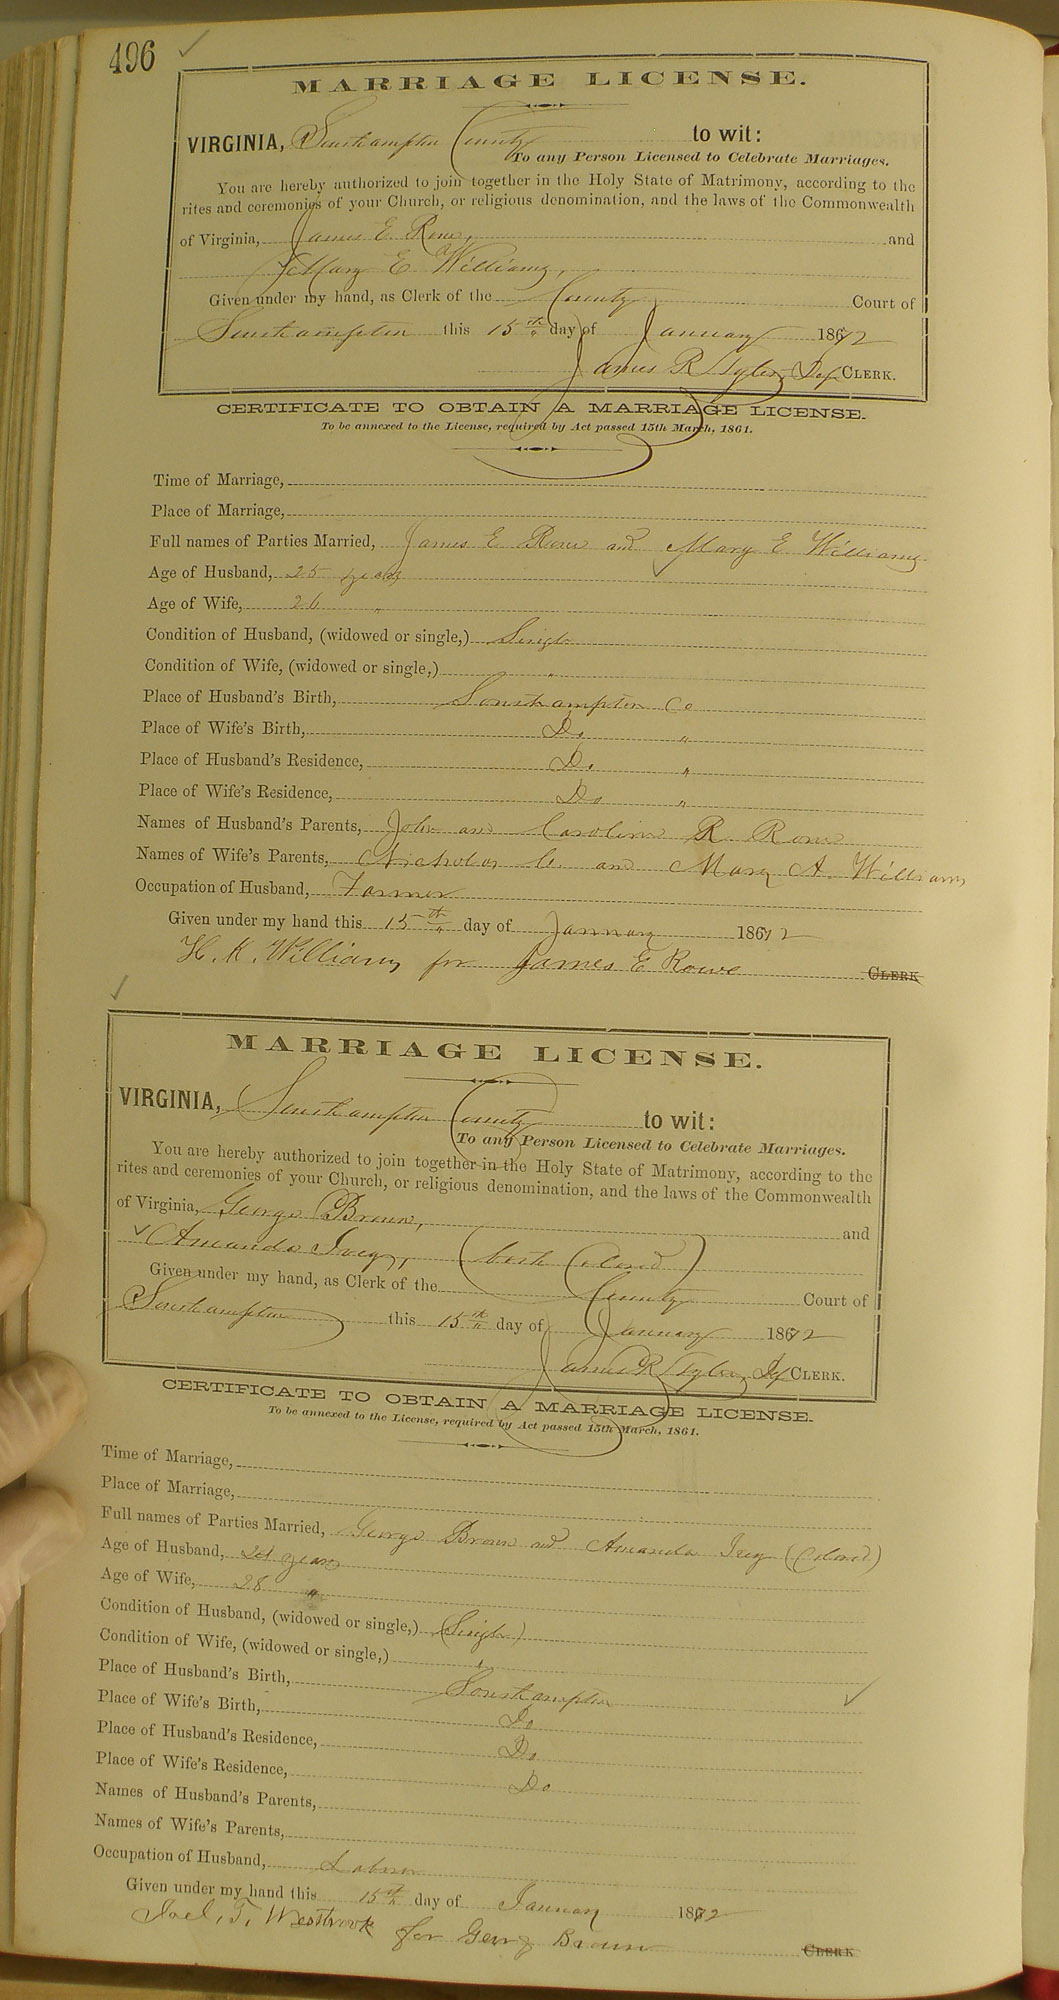 496
MARRIAGE LICENSE.
VIRGINIA, Southampton County to wit:
To any Person Licensed to Celebrate Marriages.
You are hereby authorized to join together in the Holy State of Matrimony, according to the
rites and ceremonies of your Church, or religious denomination, and the laws of the Commonwealth
of Virginia, James E. Rowe, and
Mary E. Williams,
Given under my hand, as Clerk of the County Court of
Southampton this 15th day of January 1872
James R Tyler Dep CLERK.
CERTIFICATE TO OBTAIN A MARRIAGE LICENSE.
To be annexed to the License, required by Act passed 15th March, 1861.
Time of Marriage,
Place of Marriage,
Full names of Parties Married, James E Rowe and Mary E Williams
Age of Husband, 25 years
Age of Wife, 26 "
Condition of Husband, (widowed or single,) Single
Condition of Wife, (widowed or single,) "
Place of Husband's Birth, Southampton Co
Place of Wife's Birth, Do "
Place of Husband's Residence, Do "
Place of Wife's Residence, Do "
Names of Husband's Parents, John and Caroline R Rowe
Names of Wife's Parents, Nicholas and Mary A. Williams
Occupation of Husband, Farmer
Given under my hand this 15th day of January 1872
H. K. Williams for James E Rowe CLERK
MARRIAGE LICENSE.
VIRGINIA, Southampton County to wit:
To any Person Licensed to Celebrate Marriages.
You are hereby authorized to join together in the Holy State of Matrimony, according to the
rites and ceremonies of your Church, or religious denomination, and the laws of the Commonwealth
of Virginia, George Brown, and
Amanda Ivey, (both Colored)
Given under my hand, as Clerk of the County Court of
Southampton this 15th day of January 1872
James R Tyler Dep CLERK.
CERTIFICATE TO OBTAIN A MARRIAGE LICENSE.
To be annexed to the License, required by Act passed 15th March, 1861.
Time of Marriage,
Place of Marriage,
Full names of Parties Married, George Brown and Amanda Ivey (Colored)
Age of Husband, years
Age of Wife, 28 "
Condition of Husband, (widowed or single,) (Single)
Condition of Wife, (widowed or single,) "
Place of Husband's Birth, Southampton
Place of Wife's Birth, Do
Place of Husband's Residence, Do
Place of Wife's Residence, Do
Names of Husband's Parents,
Names of Wife's Parents,
Occupation of Husband, Laborer
Given under my hand this 15th day of January 1872
Joel. T. Westbrook for Georg Brown CLERK